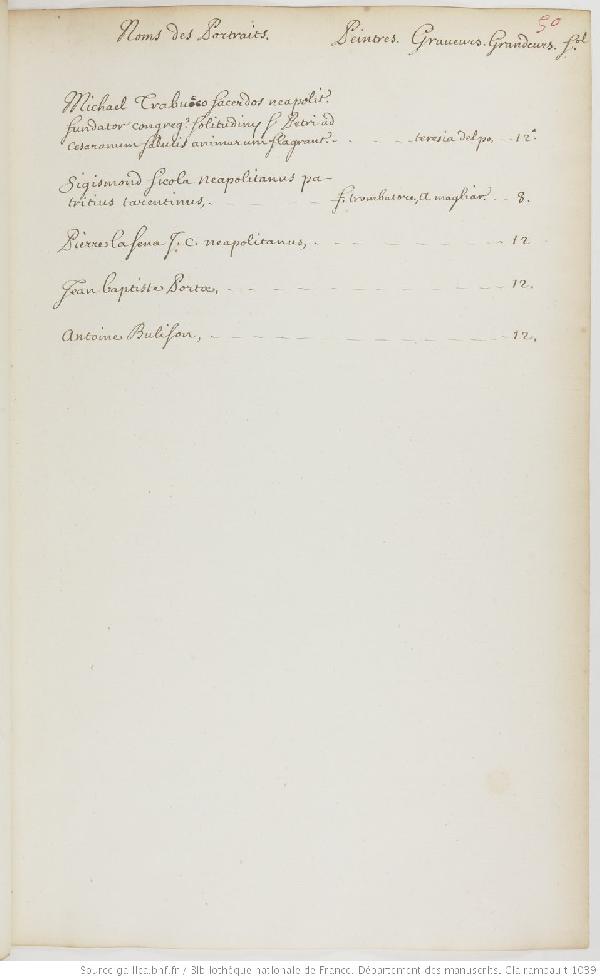 50
Noms des Portraits. Peintres. Graveurs. Grandeurs. f.ol
Michael Trabucco sacerdos neapolit.
fundator congreg.s solitudinis S. Petri ad
Cesaranum salutis animarum flagrant.s - - - teresia del po, - - 12.o
Sigismond sicola neapolitanus pa-
tritius tarentinus, - - - f. trombatore, A magliar. - - 8.
Pierre la sena J. C. neapolitanus, - - - 12
Jean baptiste Portae, - - - 12.
Antoine Bulifon, - - - 12.
Source gallica.bnf.fr / Bibliothèque nationale de France. Département des manuscrits. Clairambault 1039